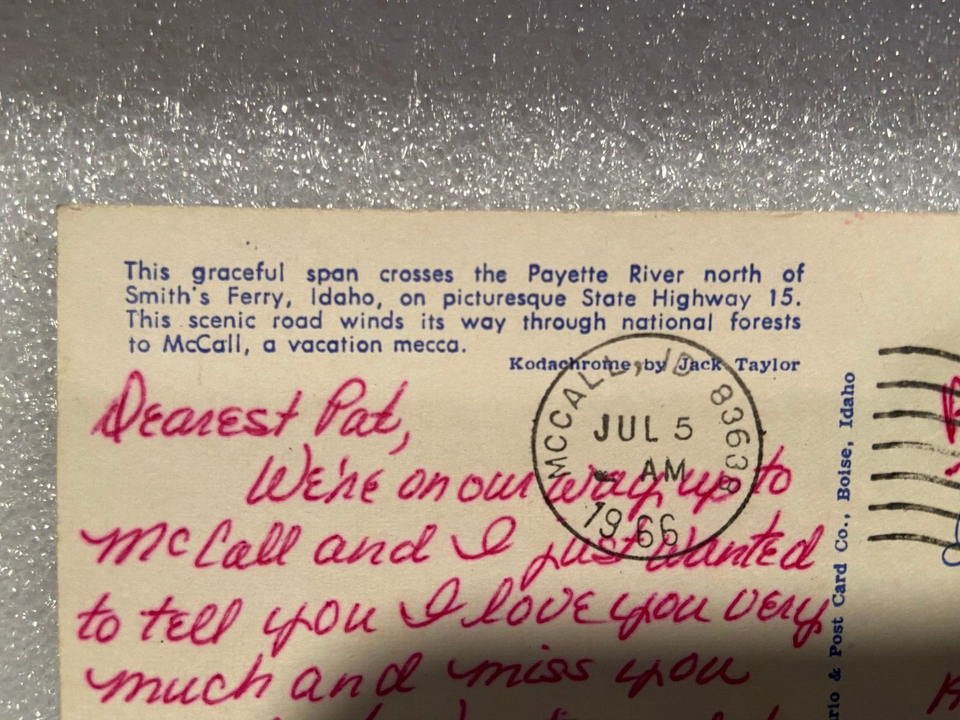 This graceful span crosses the Payette River north of
Smith's Ferry, Idaho, on picturesque State Highway 15.
This scenic road winds its way through national forests
to McCall, a vacation mecca.
Kodachrome by Jack Taylor
MCCALL, ID 83638
JUL 5
AM
1966
Dearest Pat,
We're on our way up to
McCall and I just wanted
to tell you I love you very
much and miss you
& Post Card Co., Boise, Idaho